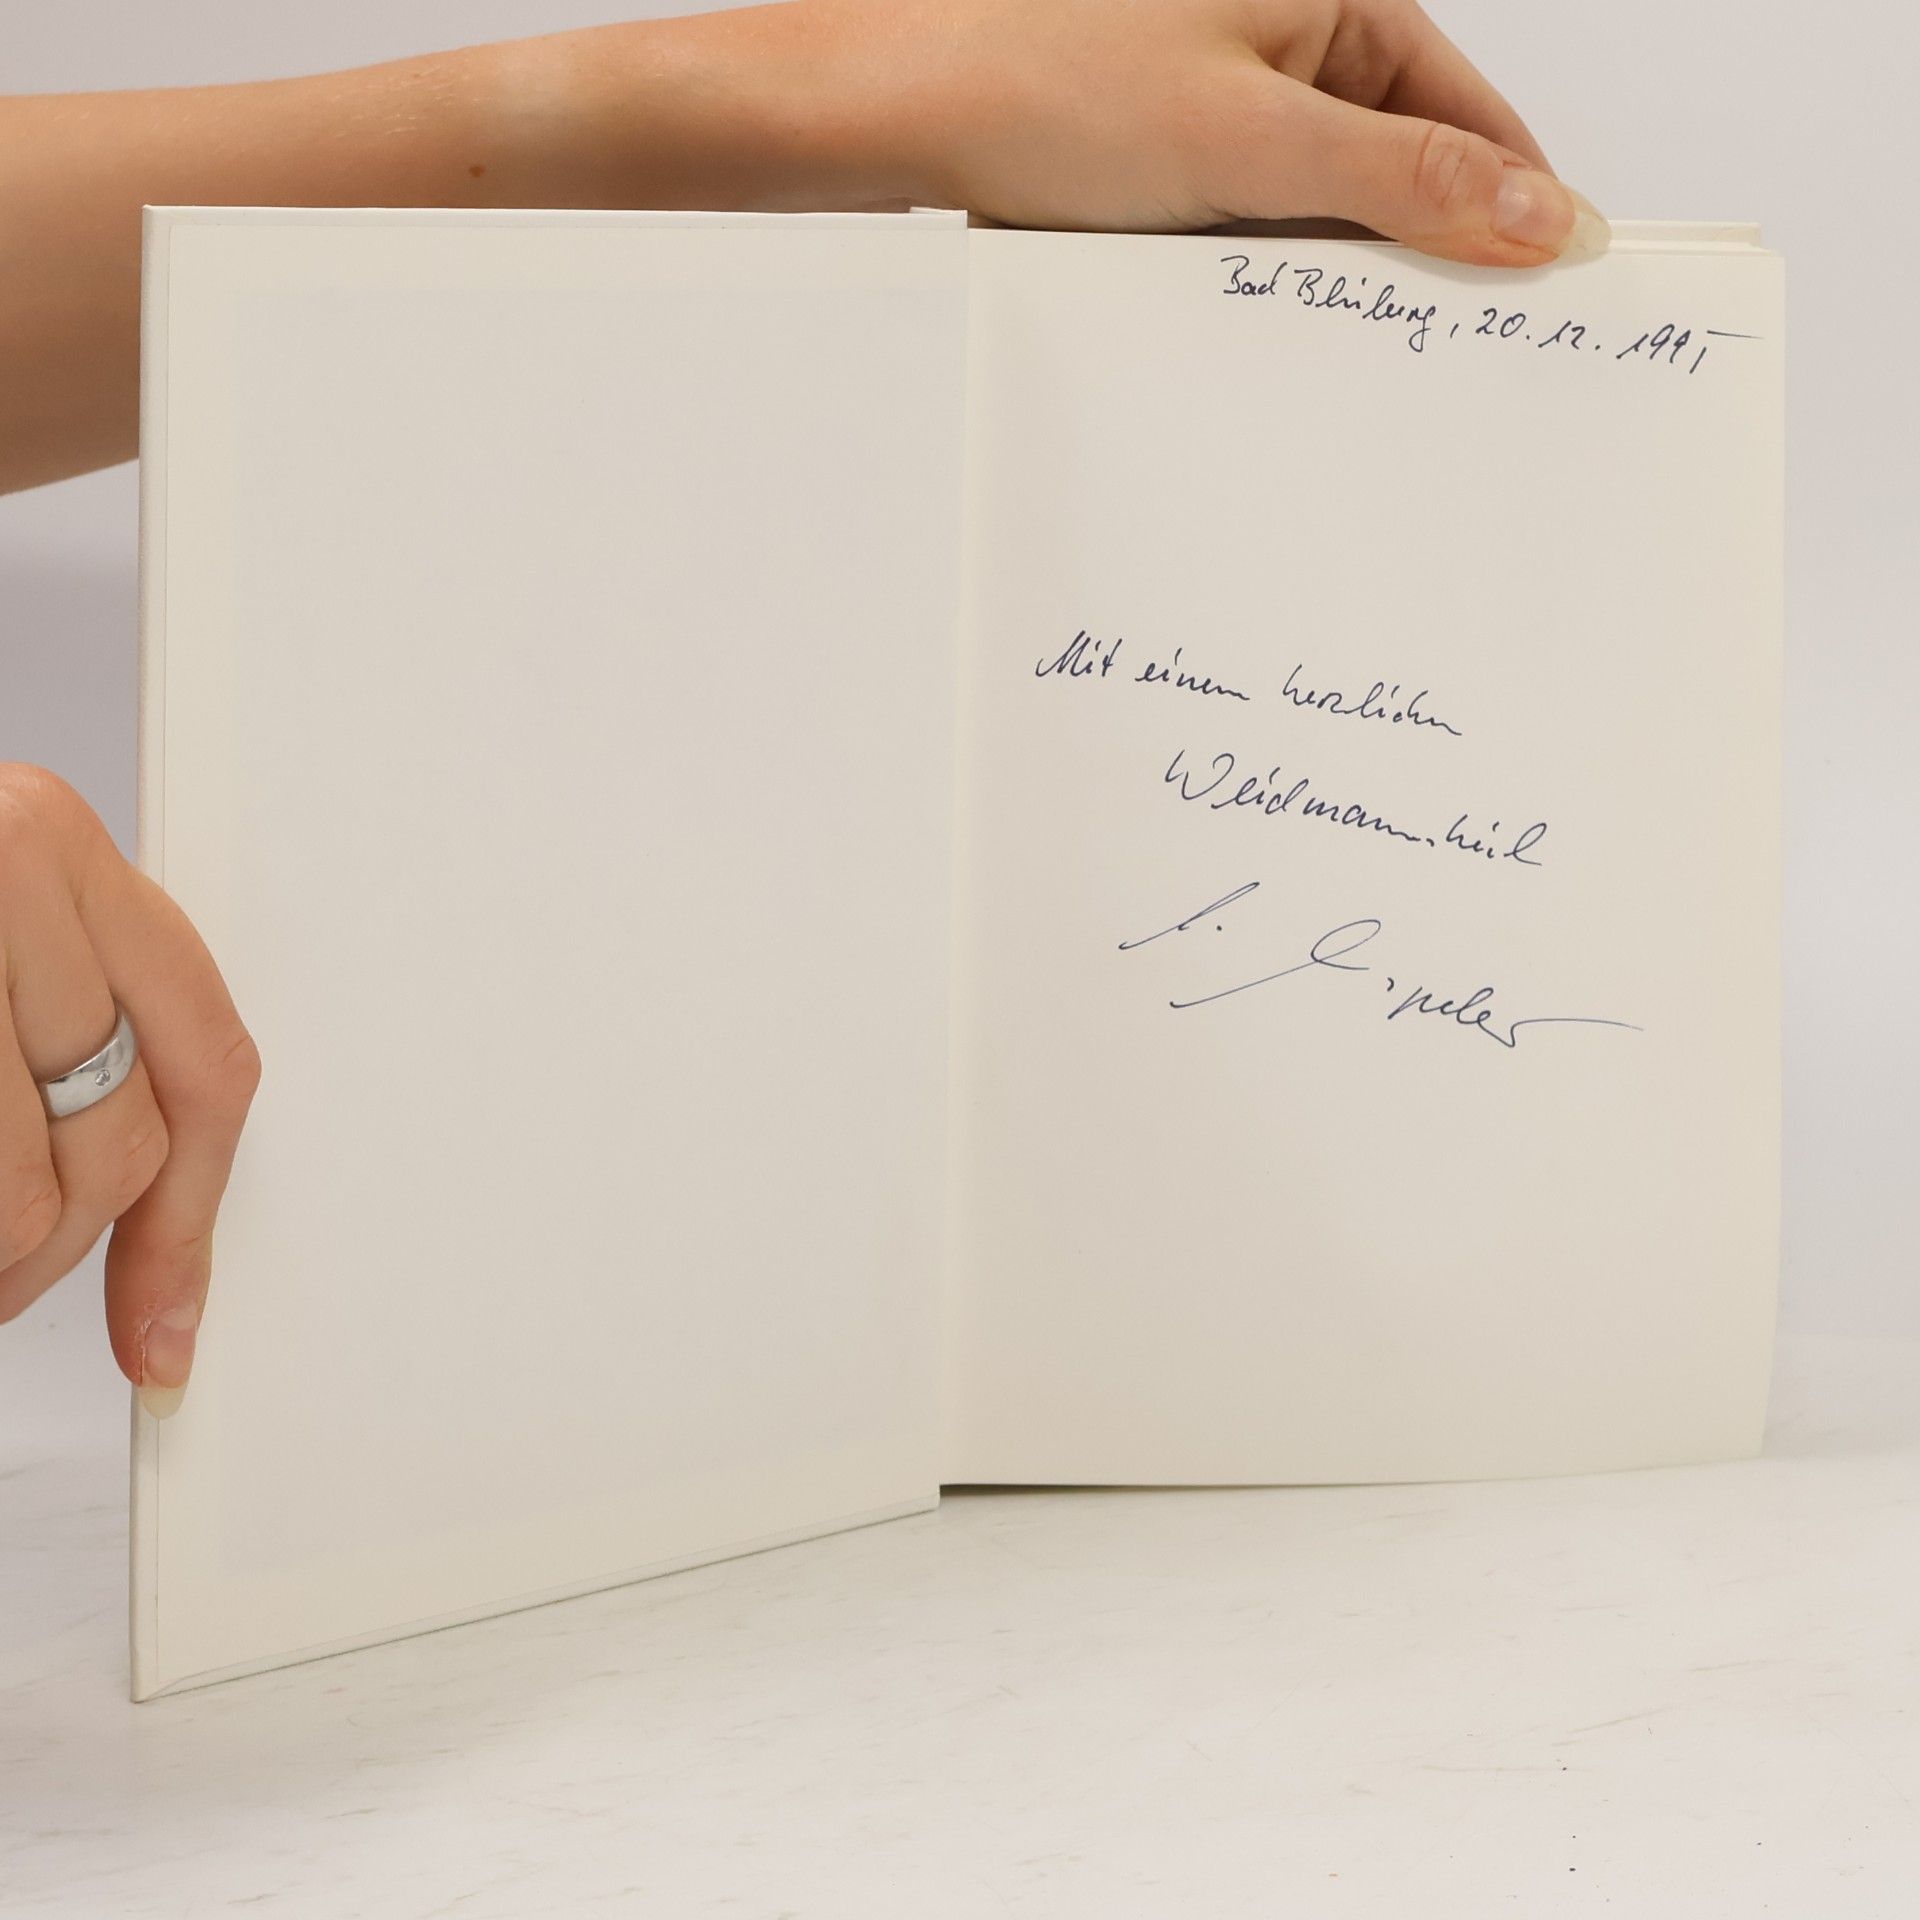 Bad Blilburg, 20.12.1995
Mit einem herzlichen
Weidmannsheil